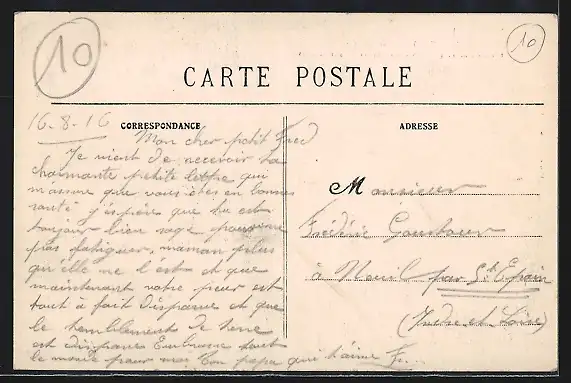 10
10
CARTE POSTALE
16-8-16
CORRESPONDANCE
ADRESSE
Mon cher petit Fred
Je vient de recevoir ta
charmante petite lettre qui
m'assure que vous êtes en bonne
santé j'éspère que tu est
toujour bien sage pour ne
pas fatiguer, maman plus
qu'elle ne l'est et que
maintenant votre peur est
tout à fait disparue et que
le tremblement de terre
est disparu Embrasse tout
le monde pour moi ton papa qui t'aime
Monsieur
Frédéric
à Neuil par St Epain
(Indre et Loire)